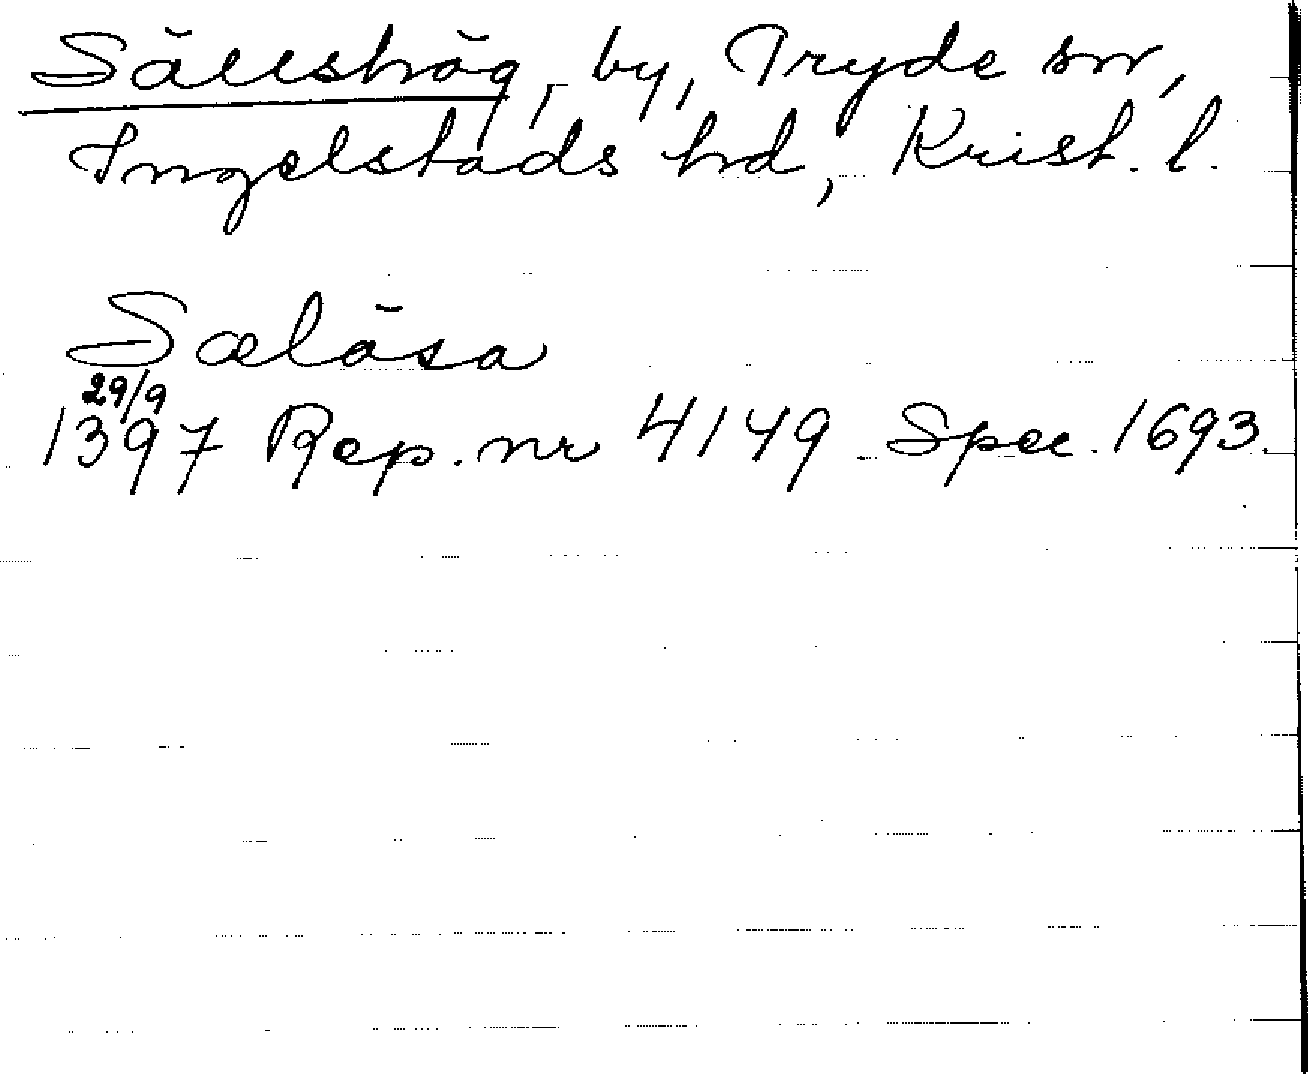 Sällshög, by, Tryde sn,
Ingelstads hd, Krist. l.
Sælösa
29/9
1397 Rep. nr 4149 Spec. 1693.